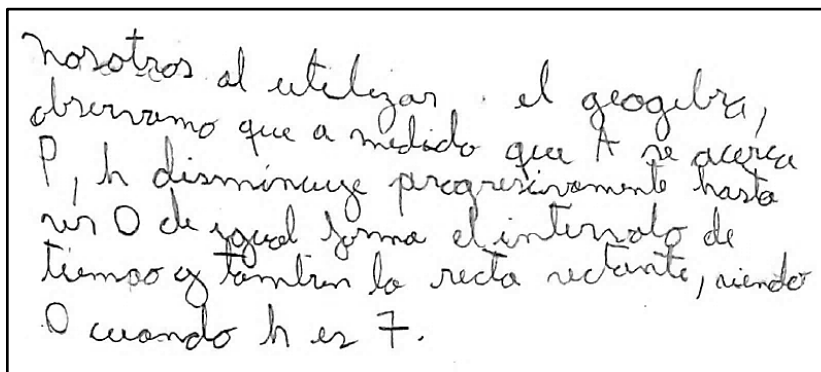 nosotros al utilizar . el geogebra,
observamo que a medida que A se acerca
P, h disminuye progresivamente hasta
ser 0 de igual forma el intervalo de
tiempo y tambien la recta sectante, siendo
0 cuando h es 7.